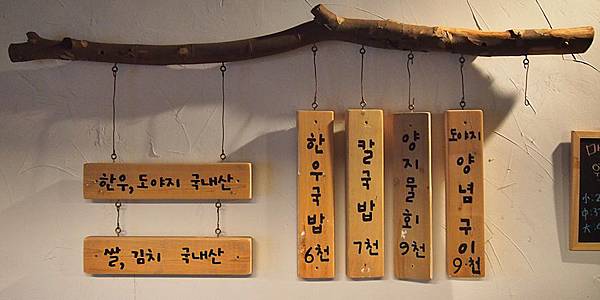 한우, 도야지 국내산
쌀, 김치 국내산
한우국밥 6천
칼국밥 7천
양지물회 9천
도야지 양념구이 9천